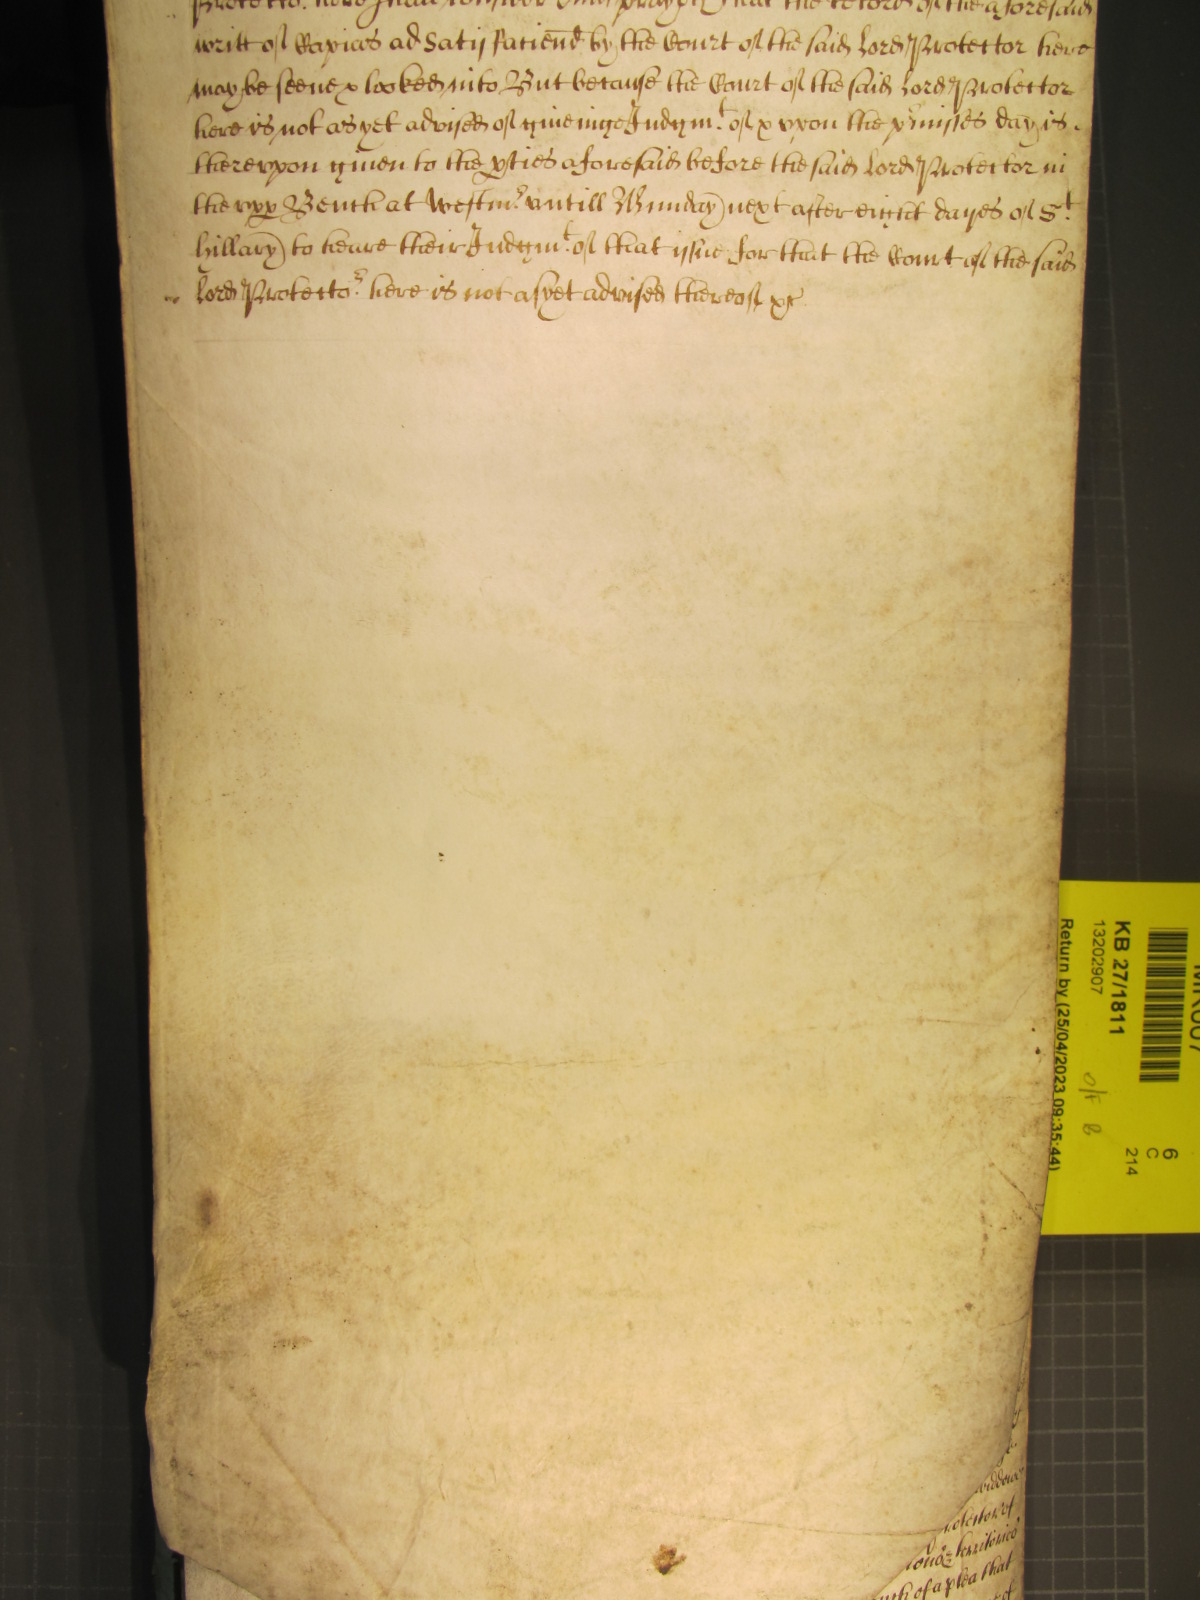 Protecto:r here shall consider And prayeth that the record of the aforesaid
writt of Capias ad Satisfaciend by the Court of the said Lord Protector here
may be seene & looked into But because the Court of the said Lord Protector
here is not as yet advised of giueinge Judgm:t of & vpon the p'misses day is
therevpon giuen to the pties aforesaid before the said Lord Protector in
the vpp Bench at Westm:r vntill Munday next after eight dayes of S:t
hillary to heare their Judgm:t of that issue for that the Court of the said
Lord Protecto:r here is not as yet advised thereof &c
KB 27/1811
13202907
Return by (25/04/2023 09:35:44)
6
C
214
territories
of a plea that
of